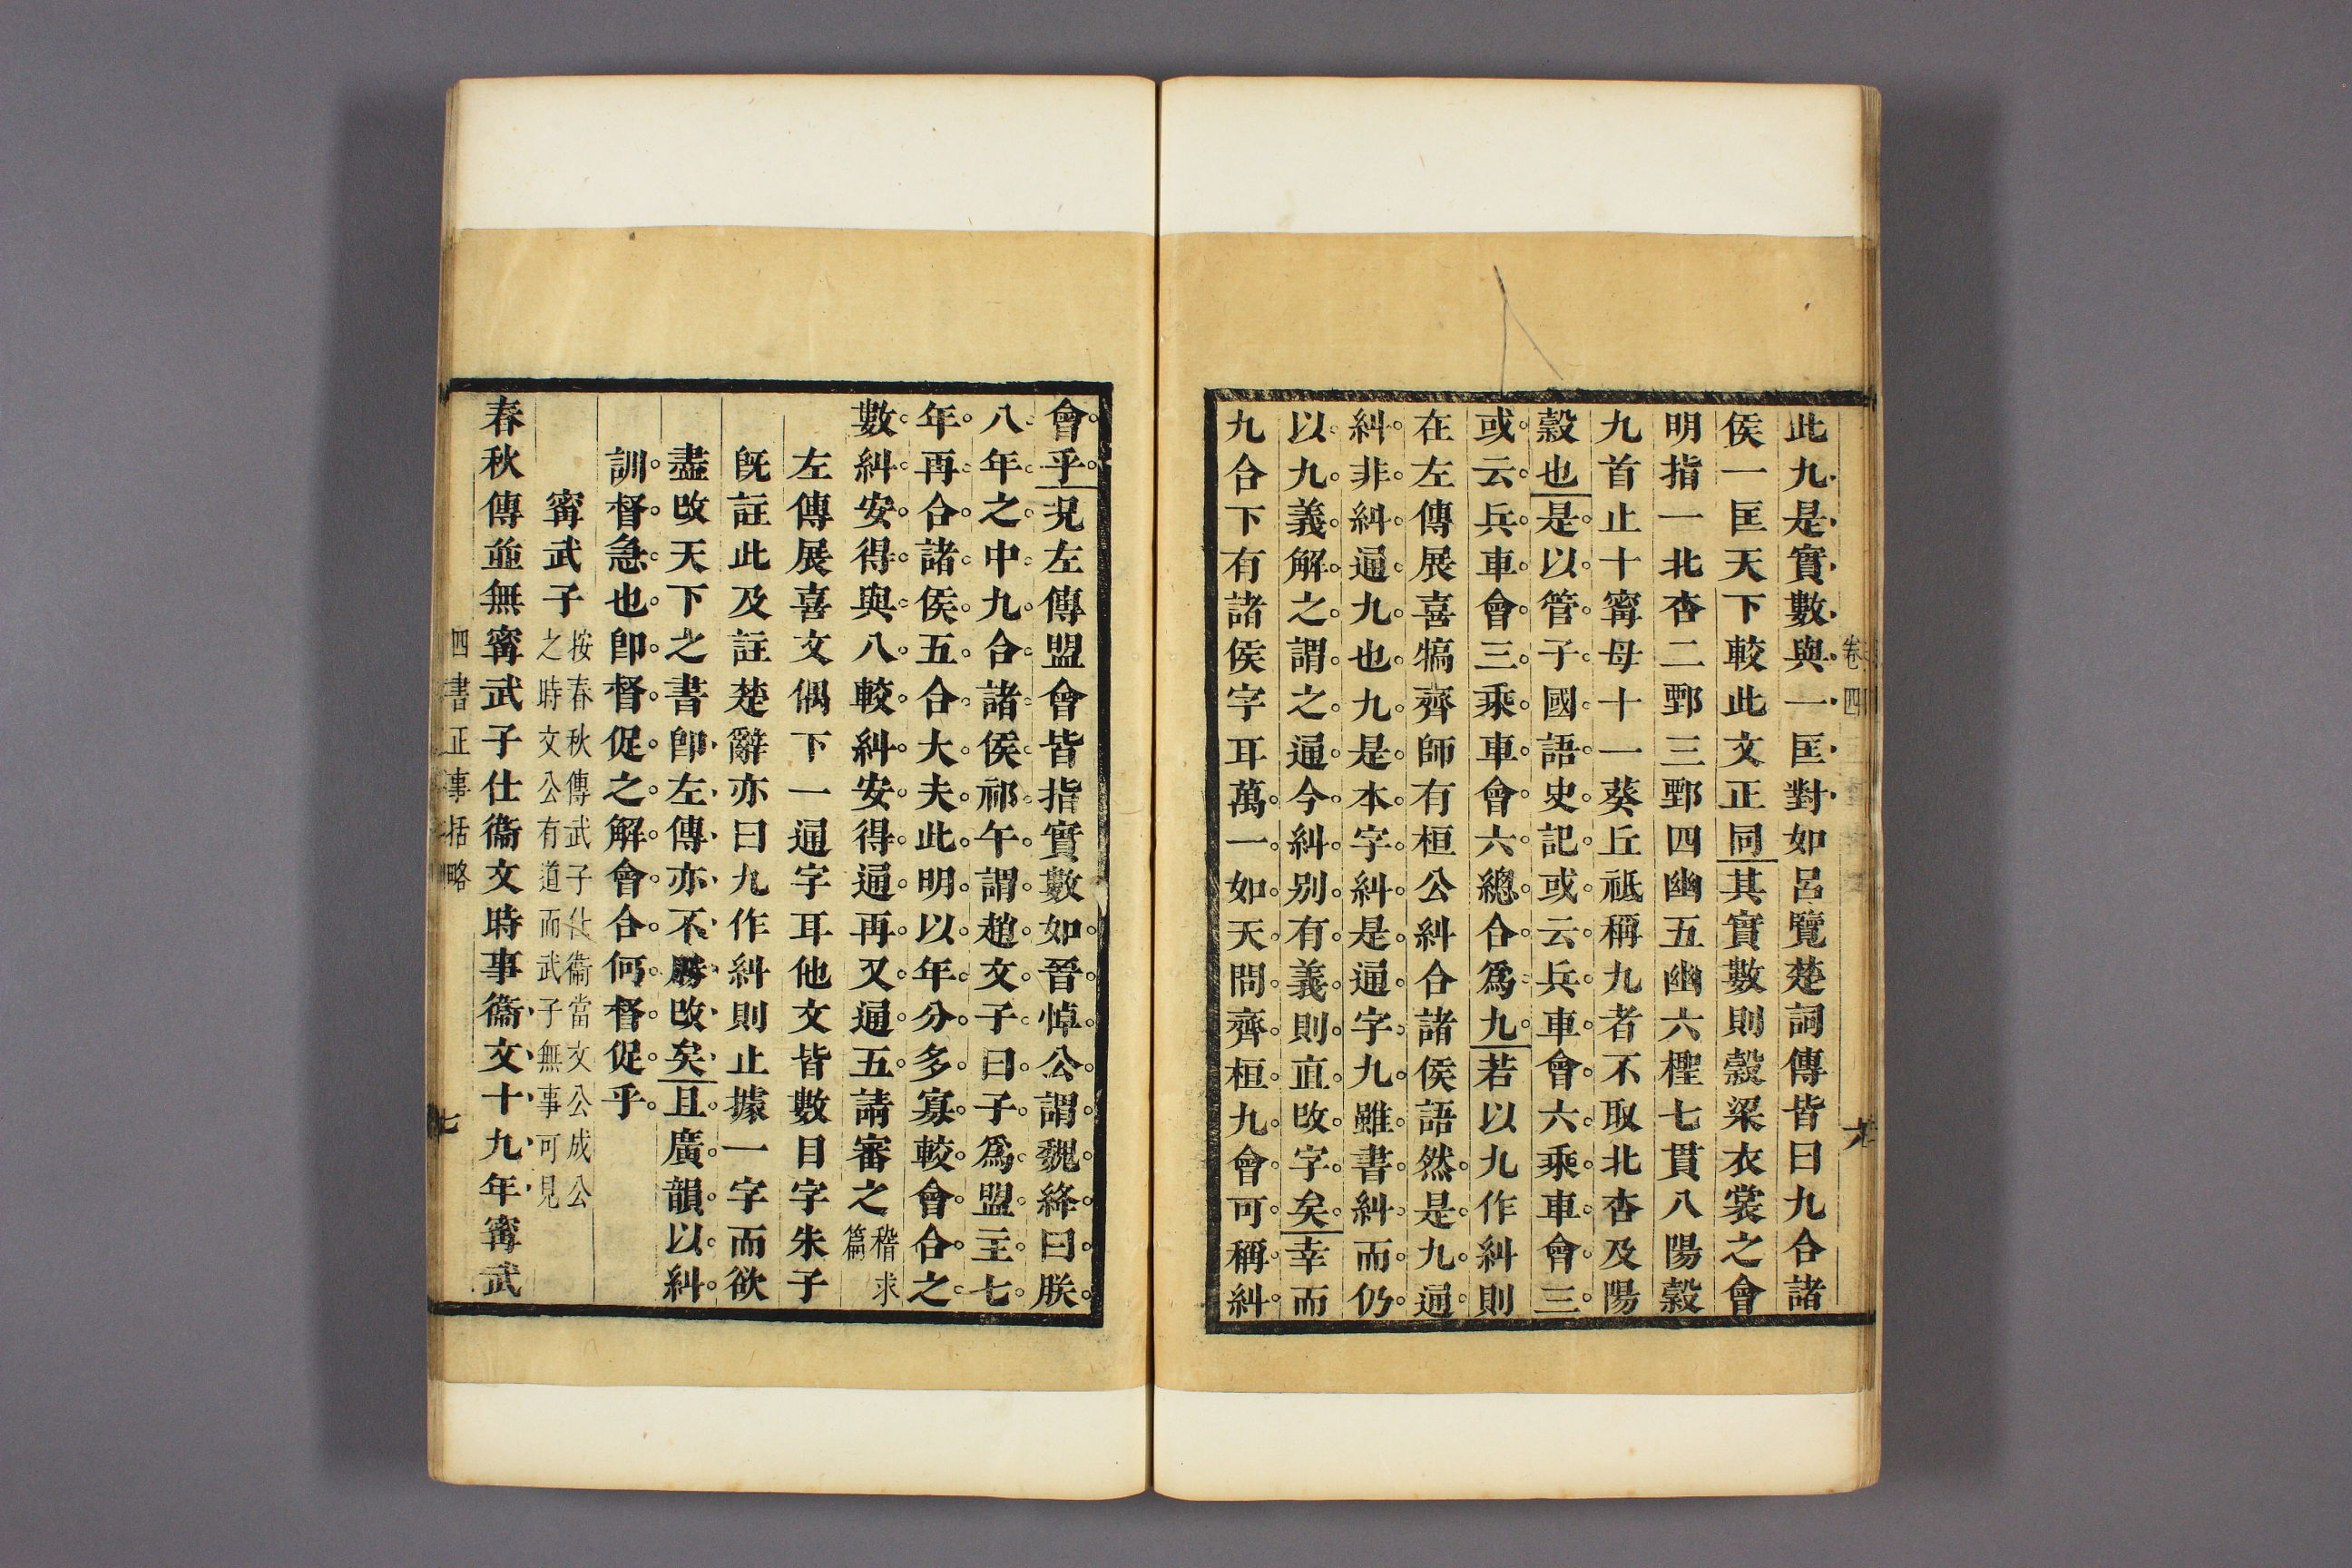 卷四
六
此九是實數與一匡對如呂覽楚詞傳皆曰九合諸
侯一匡天下較此文正同其實數則穀梁衣裳之會
明指一北杏二鄄三鄄四幽五幽六檉七貫八陽穀
九首止十甯母十一葵丘祗稱九者不取北杏及陽
穀也是以管子國語史記或云兵車會六乘車會三
或云兵車會三乘車會六總合爲九若以九作糾則
在左傳展喜犒齊師有桓公糾合諸侯語然是九通
糾非糾通九也九是本字糾是通字九雖書糾而仍
以九義解之謂之通今糾别有義則直改字矣幸而
九合下有諸侯字耳萬一如天問齊桓九會可稱糾
會乎見左傳盟會皆指實數如晉悼公謂魏絳曰朕
八年之中九合諸侯祁午謂趙文子曰子爲盟主七
年再合諸侯五合大夫此明以年分多寡較會合之
數糾安得與八較糾安得通再又通五請審之稽求
篇
左傳展喜文偶下一通字耳他文皆數目字朱子
旣註此及註楚辭亦曰九作糾則止據一字而欲
盡改天下之書卽左傳亦不勝改矣且廣韻以糾
訓督急也卽督促之解會合何督促乎
甯武子按春秋傳武子仕衞當文公成公
之時文公有道而武子無事可見
春秋傳並無甯武子仕衞文時事衞文十九年甯武
四書正事括略
七